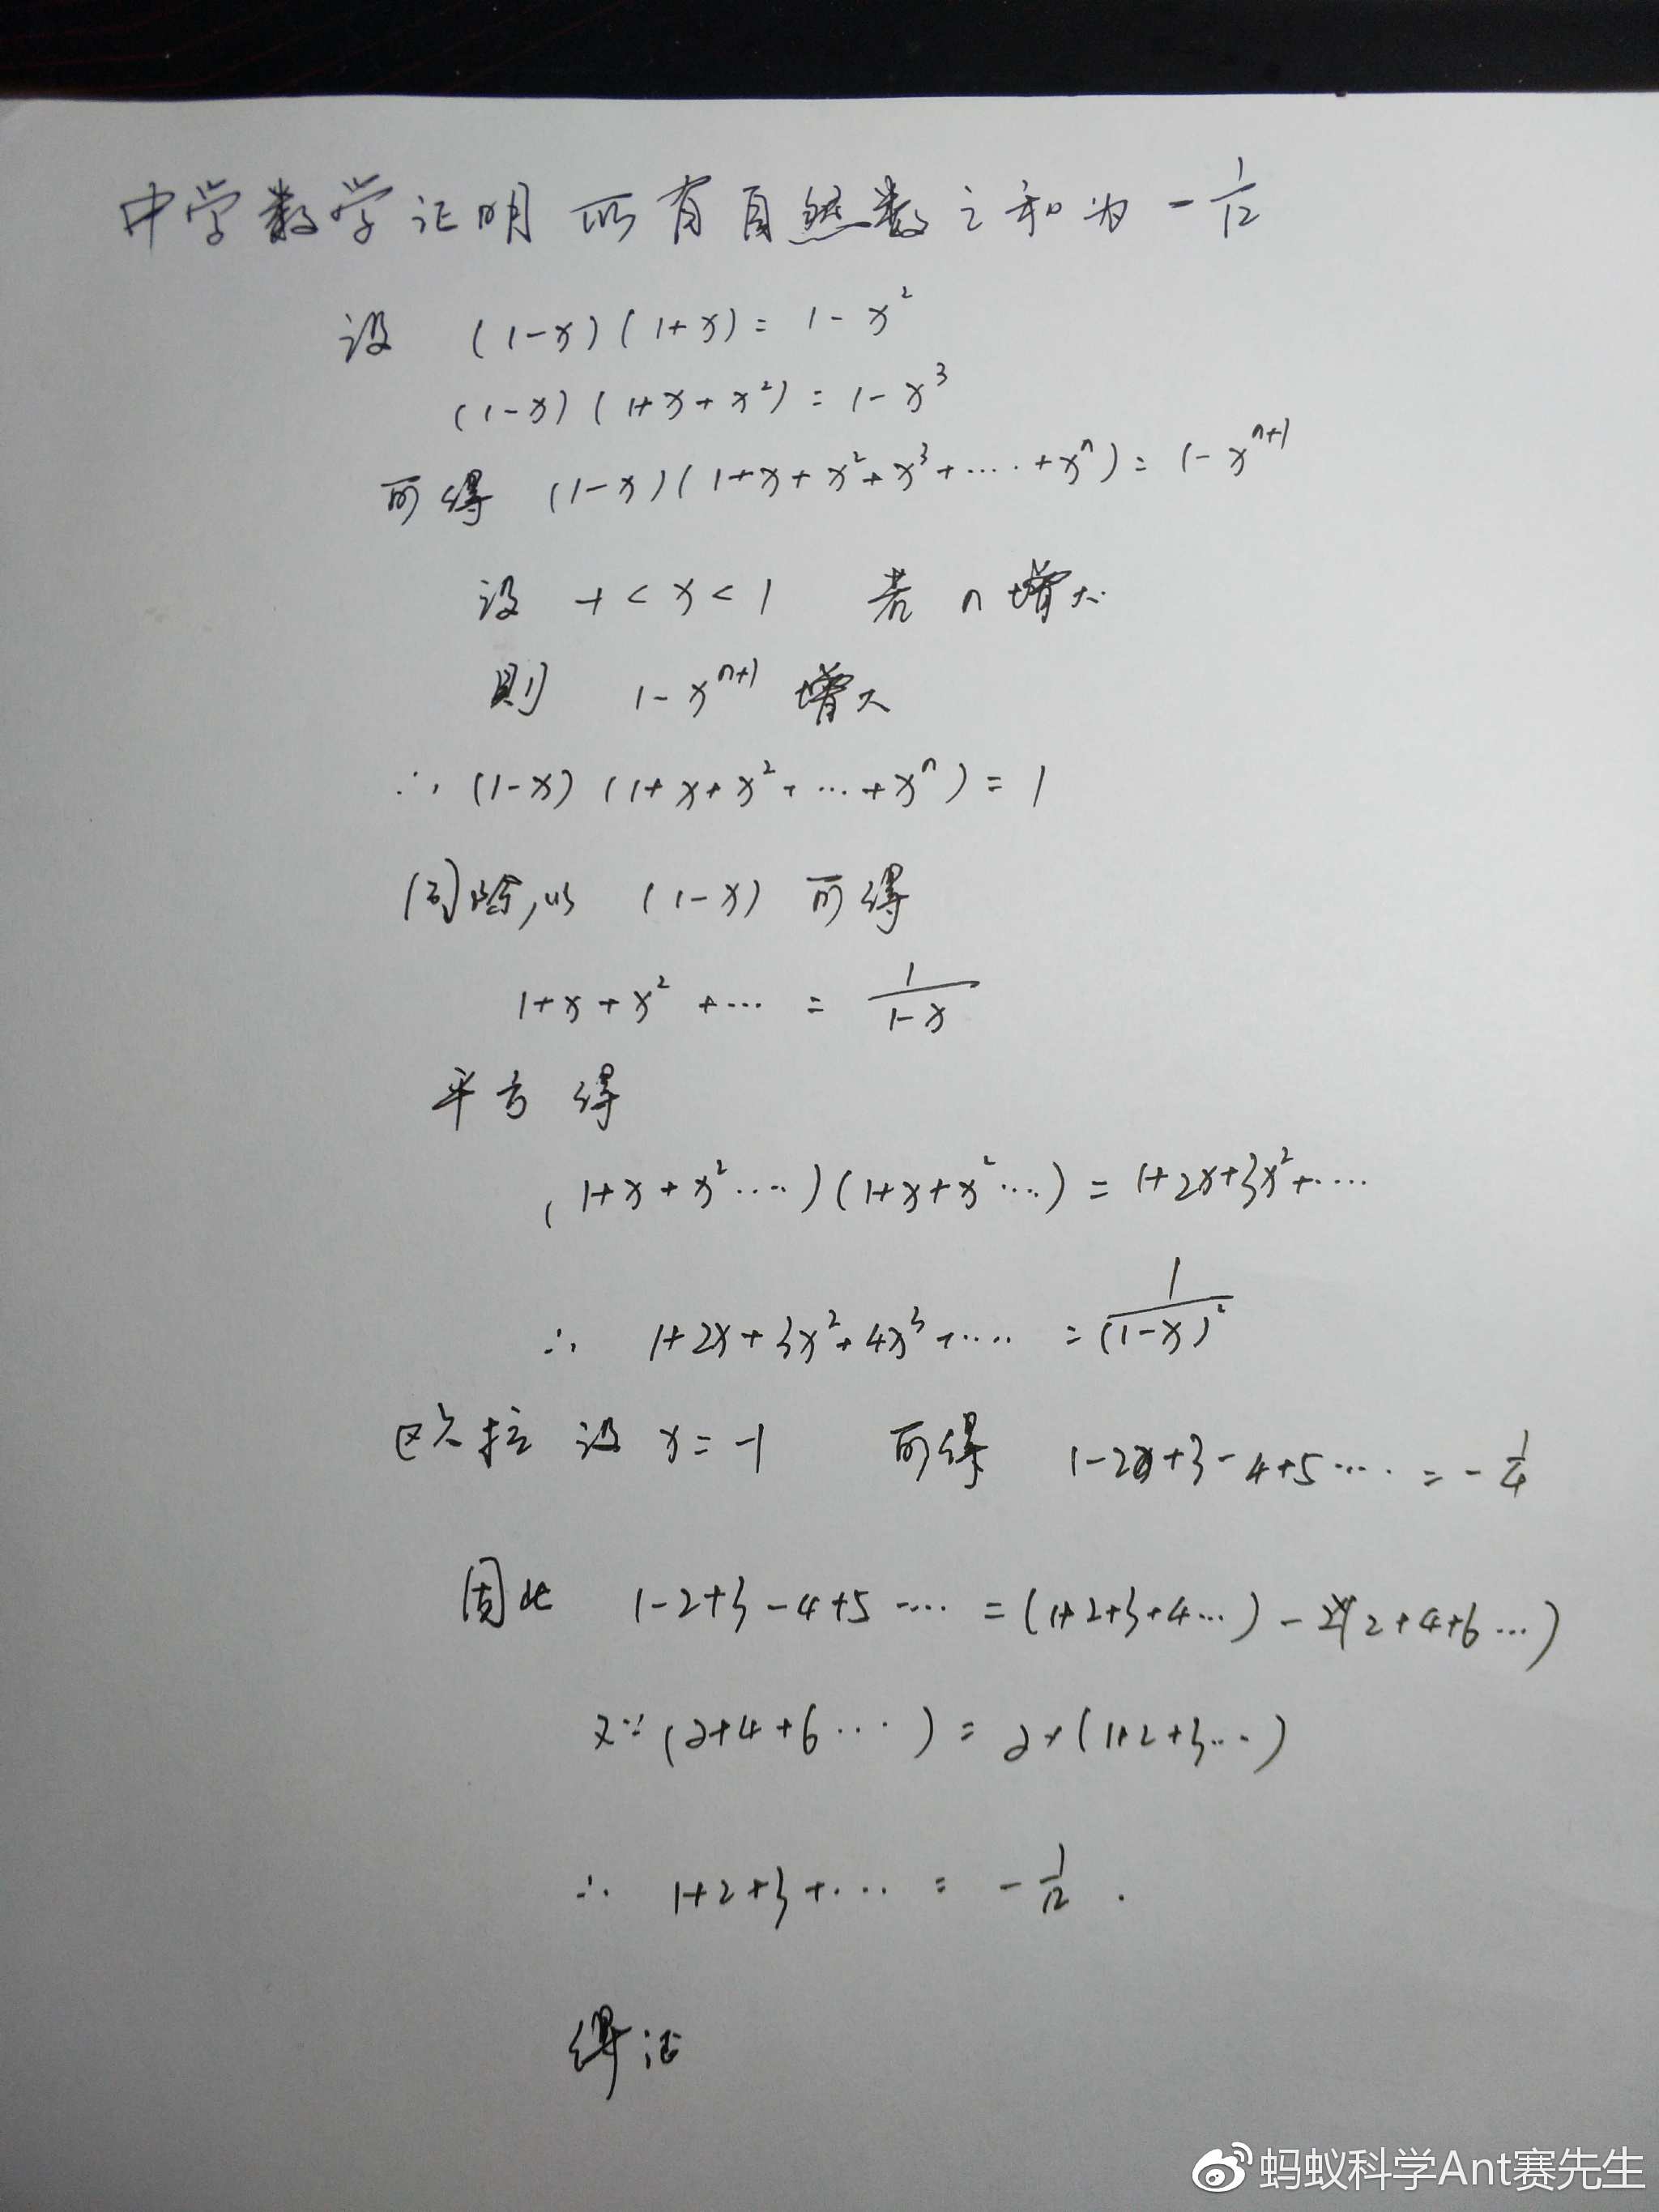 中学数学证明 所有自然数之和为 -1/12
设 (1-x)(1+x) = 1-x²
(1-x)(1+x+x²) = 1-x³
可得 (1-x)(1+x+x²+x³+.....+xⁿ) = 1-xⁿ⁺¹
设 -1 < x < 1 若 n 增大
则 1-xⁿ⁺¹ 增大
∴ (1-x)(1+x+x²+...+xⁿ) = 1
同除以 (1-x) 可得
1+x+x²+... = 1/(1-x)
平方得
(1+x+x²....)(1+x+x²....) = 1+2x+3x²+....
∴ 1+2x+3x²+4x³+..... = 1/(1-x)²
欧拉设 x=-1 可得 1-2+3-4+5.... = -1/4
因此 1-2+3-4+5.... = (1+2+3+4...) - 2(2+4+6...)
又∵ (2+4+6...) = 2×(1+2+3...)
∴ 1+2+3+... = -1/12.
得证
蚂蚁科学Ant赛先生